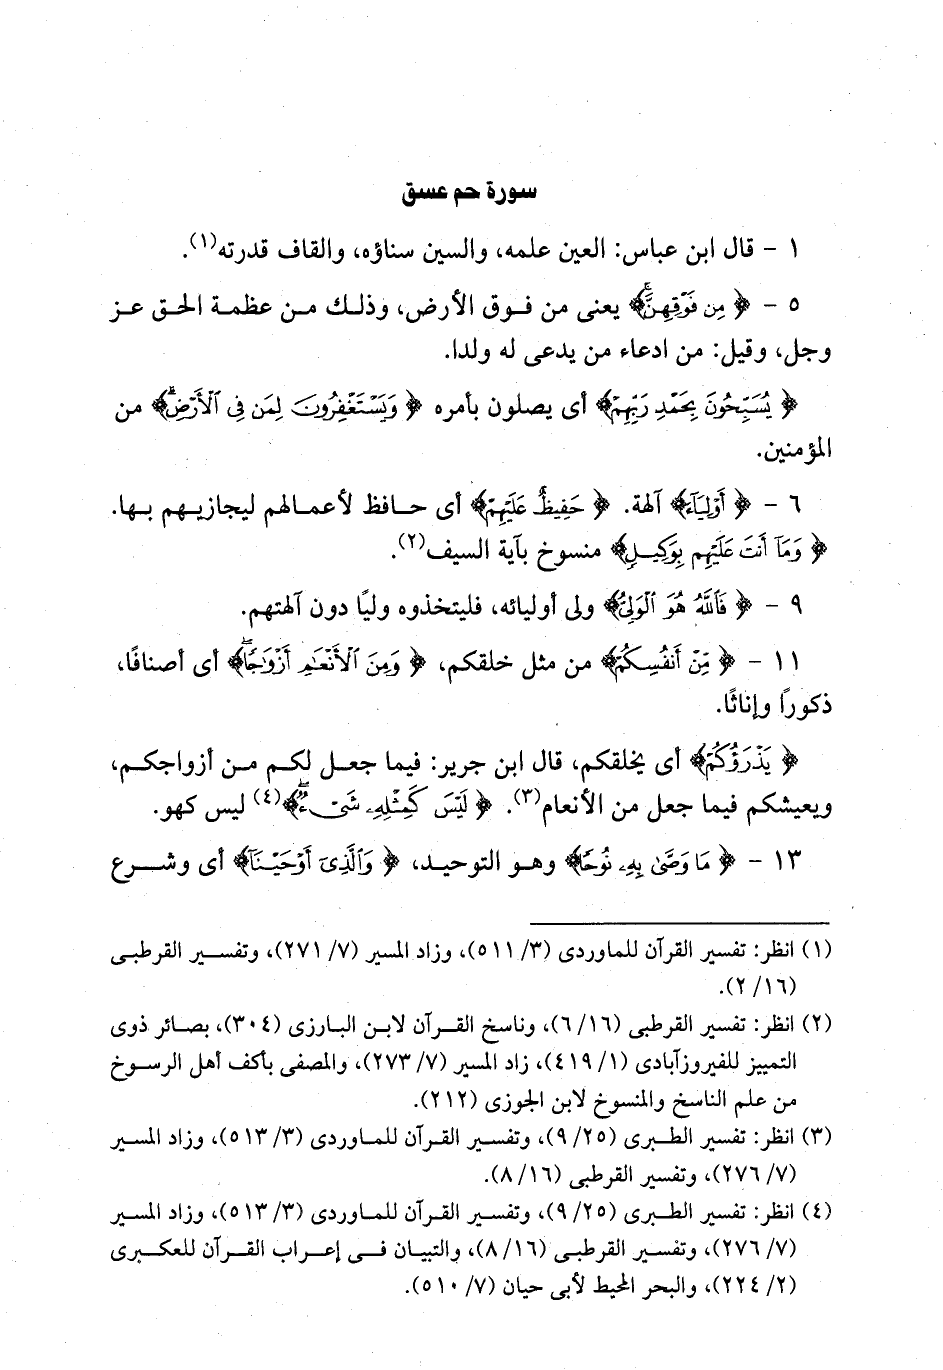 سورة حم عسق
١ - قال ابن عباس: العين علمه، والسين سناؤه، والقاف قدرته(١).
٥ - ﴿ مِن فَوْقِهِنَّ ﴾ يعنى من فـوق الأرض، وذلـك مـن عظمـة الحـق عـز
وجل، وقيل: من ادعاء من يدعى له ولدا.
﴿ يُسَبِّحُونَ بِحَمْدِ رَبِّهِمْ ﴾ أى يصلون بأمره ﴿ وَيَسْتَغْفِرُونَ لِمَن فِى ٱلْأَرْضِ ﴾ من
المؤمنين.
٦ - ﴿ أَوْلِيَآءَ ﴾ آلهة. ﴿ حَفِيظٌ عَلَيْهِمْ ﴾ أى حـافظ لأعمـالهم ليجازيـهم بـها.
﴿ وَمَآ أَنتَ عَلَيْهِم بِوَكِيلٍ ﴾ منسوخ بآية السيف(٢).
٩ - ﴿ فَٱللَّهُ هُوَ ٱلْوَلِىُّ ﴾ ولى أوليائه، فليتخذوه وليًا دون آلهتهم.
١١ - ﴿ مِّنْ أَنفُسِكُمْ ﴾ من مثل خلقكم، ﴿ وَمِنَ ٱلْأَنْعَٰمِ أَزْوَٰجًا ﴾ أى أصنافًا،
ذكورًا وإناثًا.
﴿ يَذْرَؤُكُمْ ﴾ أى يخلقكم، قال ابن جرير: فيما جعـل لكـم مـن أزواجكـم،
ويعيشكم فيما جعل من الأنعام(٣). ﴿ لَيْسَ كَمِثْلِهِۦ شَىْءٌ ﴾(٤) ليس كهو.
١٣ - ﴿ مَا وَصَّىٰ بِهِۦ نُوحًا ﴾ وهـو التوحيـد، ﴿ وَٱلَّذِىٓ أَوْحَيْنَآ ﴾ أى وشـرع
(١) انظر: تفسير القرآن للماوردى (٣/ ٥١١)، وزاد المسير (٧/ ٢٧١)، وتفسـير القرطبـى
(١٦/ ٢).
(٢) انظر: تفسير القرطبى (١٦/ ٦)، وناسخ القـرآن لابـن البـارزى (٣٠٤)، بصـائر ذوى
التمييز للفيروزآبادى (١/ ٤١٩)، زاد المسير (٧/ ٢٧٣)، والمصفى بأكف أهل الرسـوخ
من علم الناسخ والمنسوخ لابن الجوزى (٢١٢).
(٣) انظر: تفسير الطبرى (٢٥/ ٩)، وتفسـير القـرآن للمـاوردى (٣/ ٥١٣)، وزاد المسير
(٧/ ٢٧٦)، وتفسير القرطبى (١٦/ ٨).
(٤) انظر: تفسير الطبرى (٢٥/ ٩)، وتفسير القرآن للمـاوردى (٣/ ٥١٣)، وزاد المسير
(٧/ ٢٧٦)، وتفسـير القرطبـى (١٦/ ٨)، والتبيـان فـى إعـراب القـرآن للعكـبرى
(٢/ ٢٢٤)، والبحر المحيط لأبى حيان (٧/ ٥١٠).